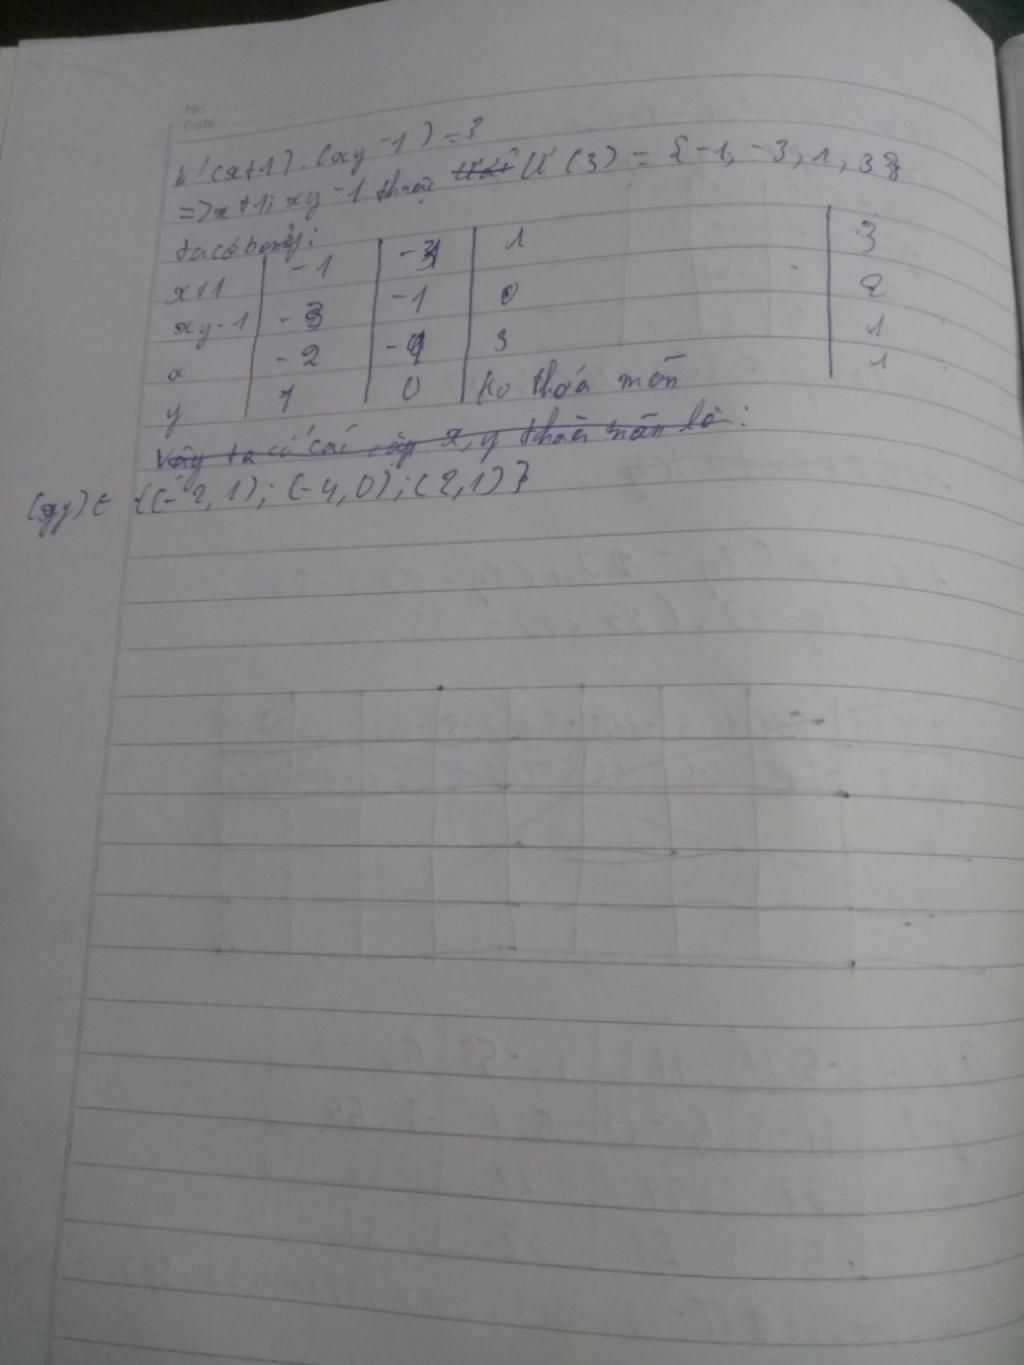 No
Date
b' (x+1).(xy-1)=3
=>x+1; xy-1 thuộc Ư(3)={-1,-3,1,3}
ta có bảng:
x+1 -1 -3 1 3
xy-1 -3 -1 0 2
x -2 -4 3 1
y 1 0 ko thỏa mãn 1
Vậy ta có các cặp x,y thỏa mãn là:
(x,y) ∈ {(-2,1);(-4,0);(2,1)}